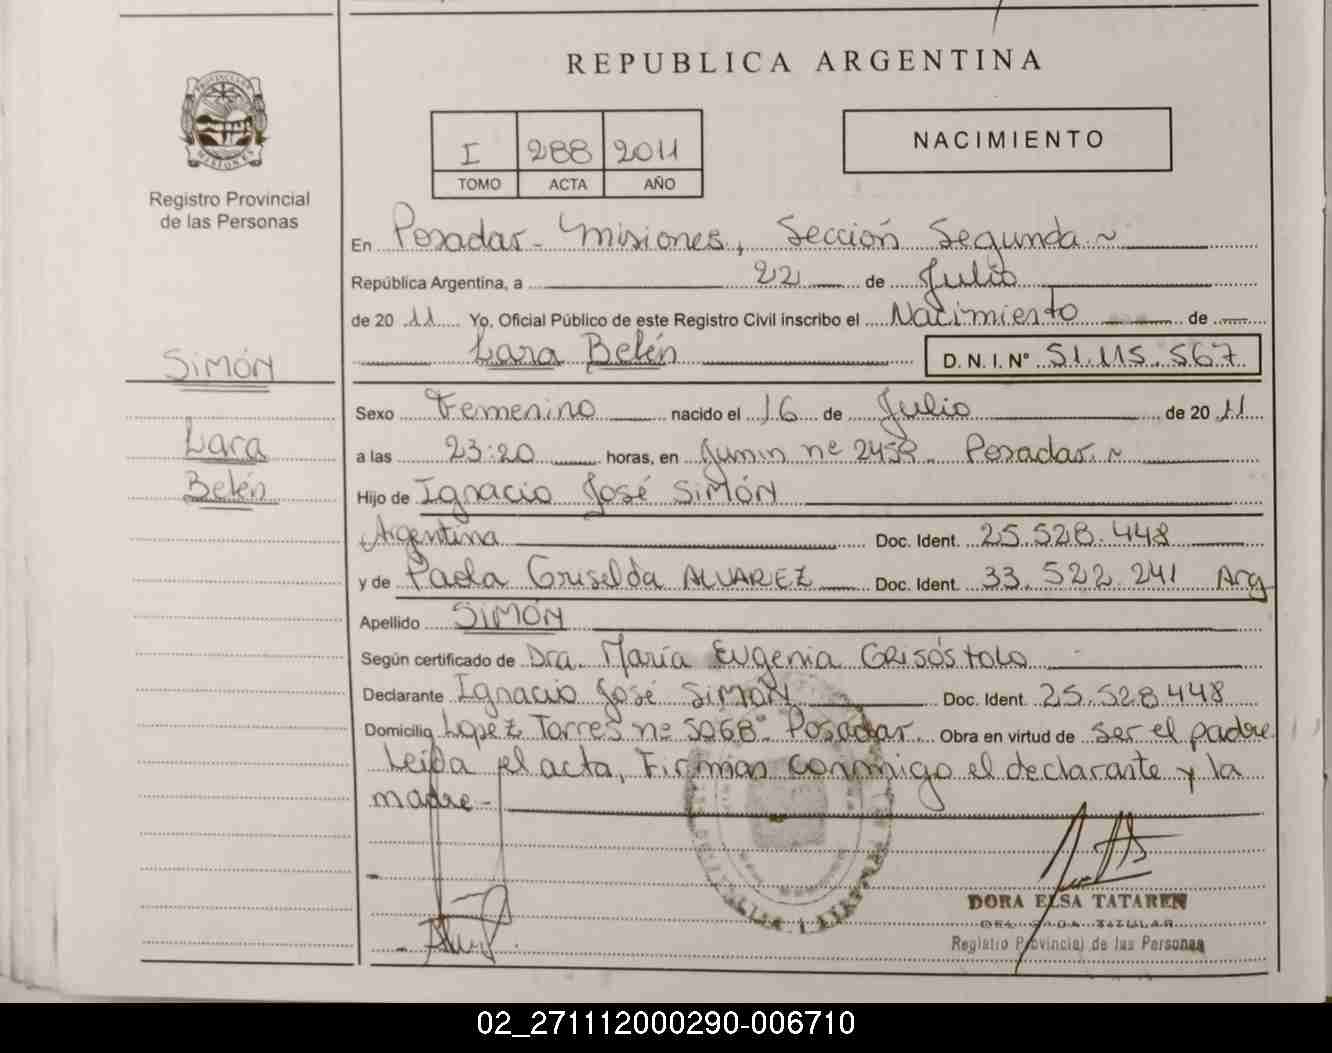 REPUBLICA ARGENTINA
PROVINCIA DE MISIONES
Registro Provincial
de las Personas
I 288 2011
TOMO ACTA AÑO
NACIMIENTO
En Posadas - Misiones, Sección Segunda ~
República Argentina, a 22 de Julio
de 20 11 Yo, Oficial Público de este Registro Civil inscribo el Nacimiento de
Lara Belén D. N. I. N° 51.115.567
SIMÓN
Lara
Belén
Sexo Femenino nacido el 16 de Julio de 20 11
a las 23:20 horas, en Junin nº 2458 Posadas. ~
Hijo de Ignacio José SIMÓN
Argentina Doc. Ident. 25.528.448
y de Paola Griselda ALVAREZ Doc. Ident. 33.522.241 Arg
Apellido SIMÓN
Según certificado de Dra. María Eugenia GRISÓSTOLO
Declarante Ignacio José SIMÓN Doc. Ident. 25.528.448
Domicilio Lopez Torres nº 5068 Posadas Obra en virtud de ser el padre
Leída el acta, Firman conmigo el declarante y la
madre-
DORA ELSA TATAREN
TITULAR
Registro Provincial de las Personas
02_271112000290-006710